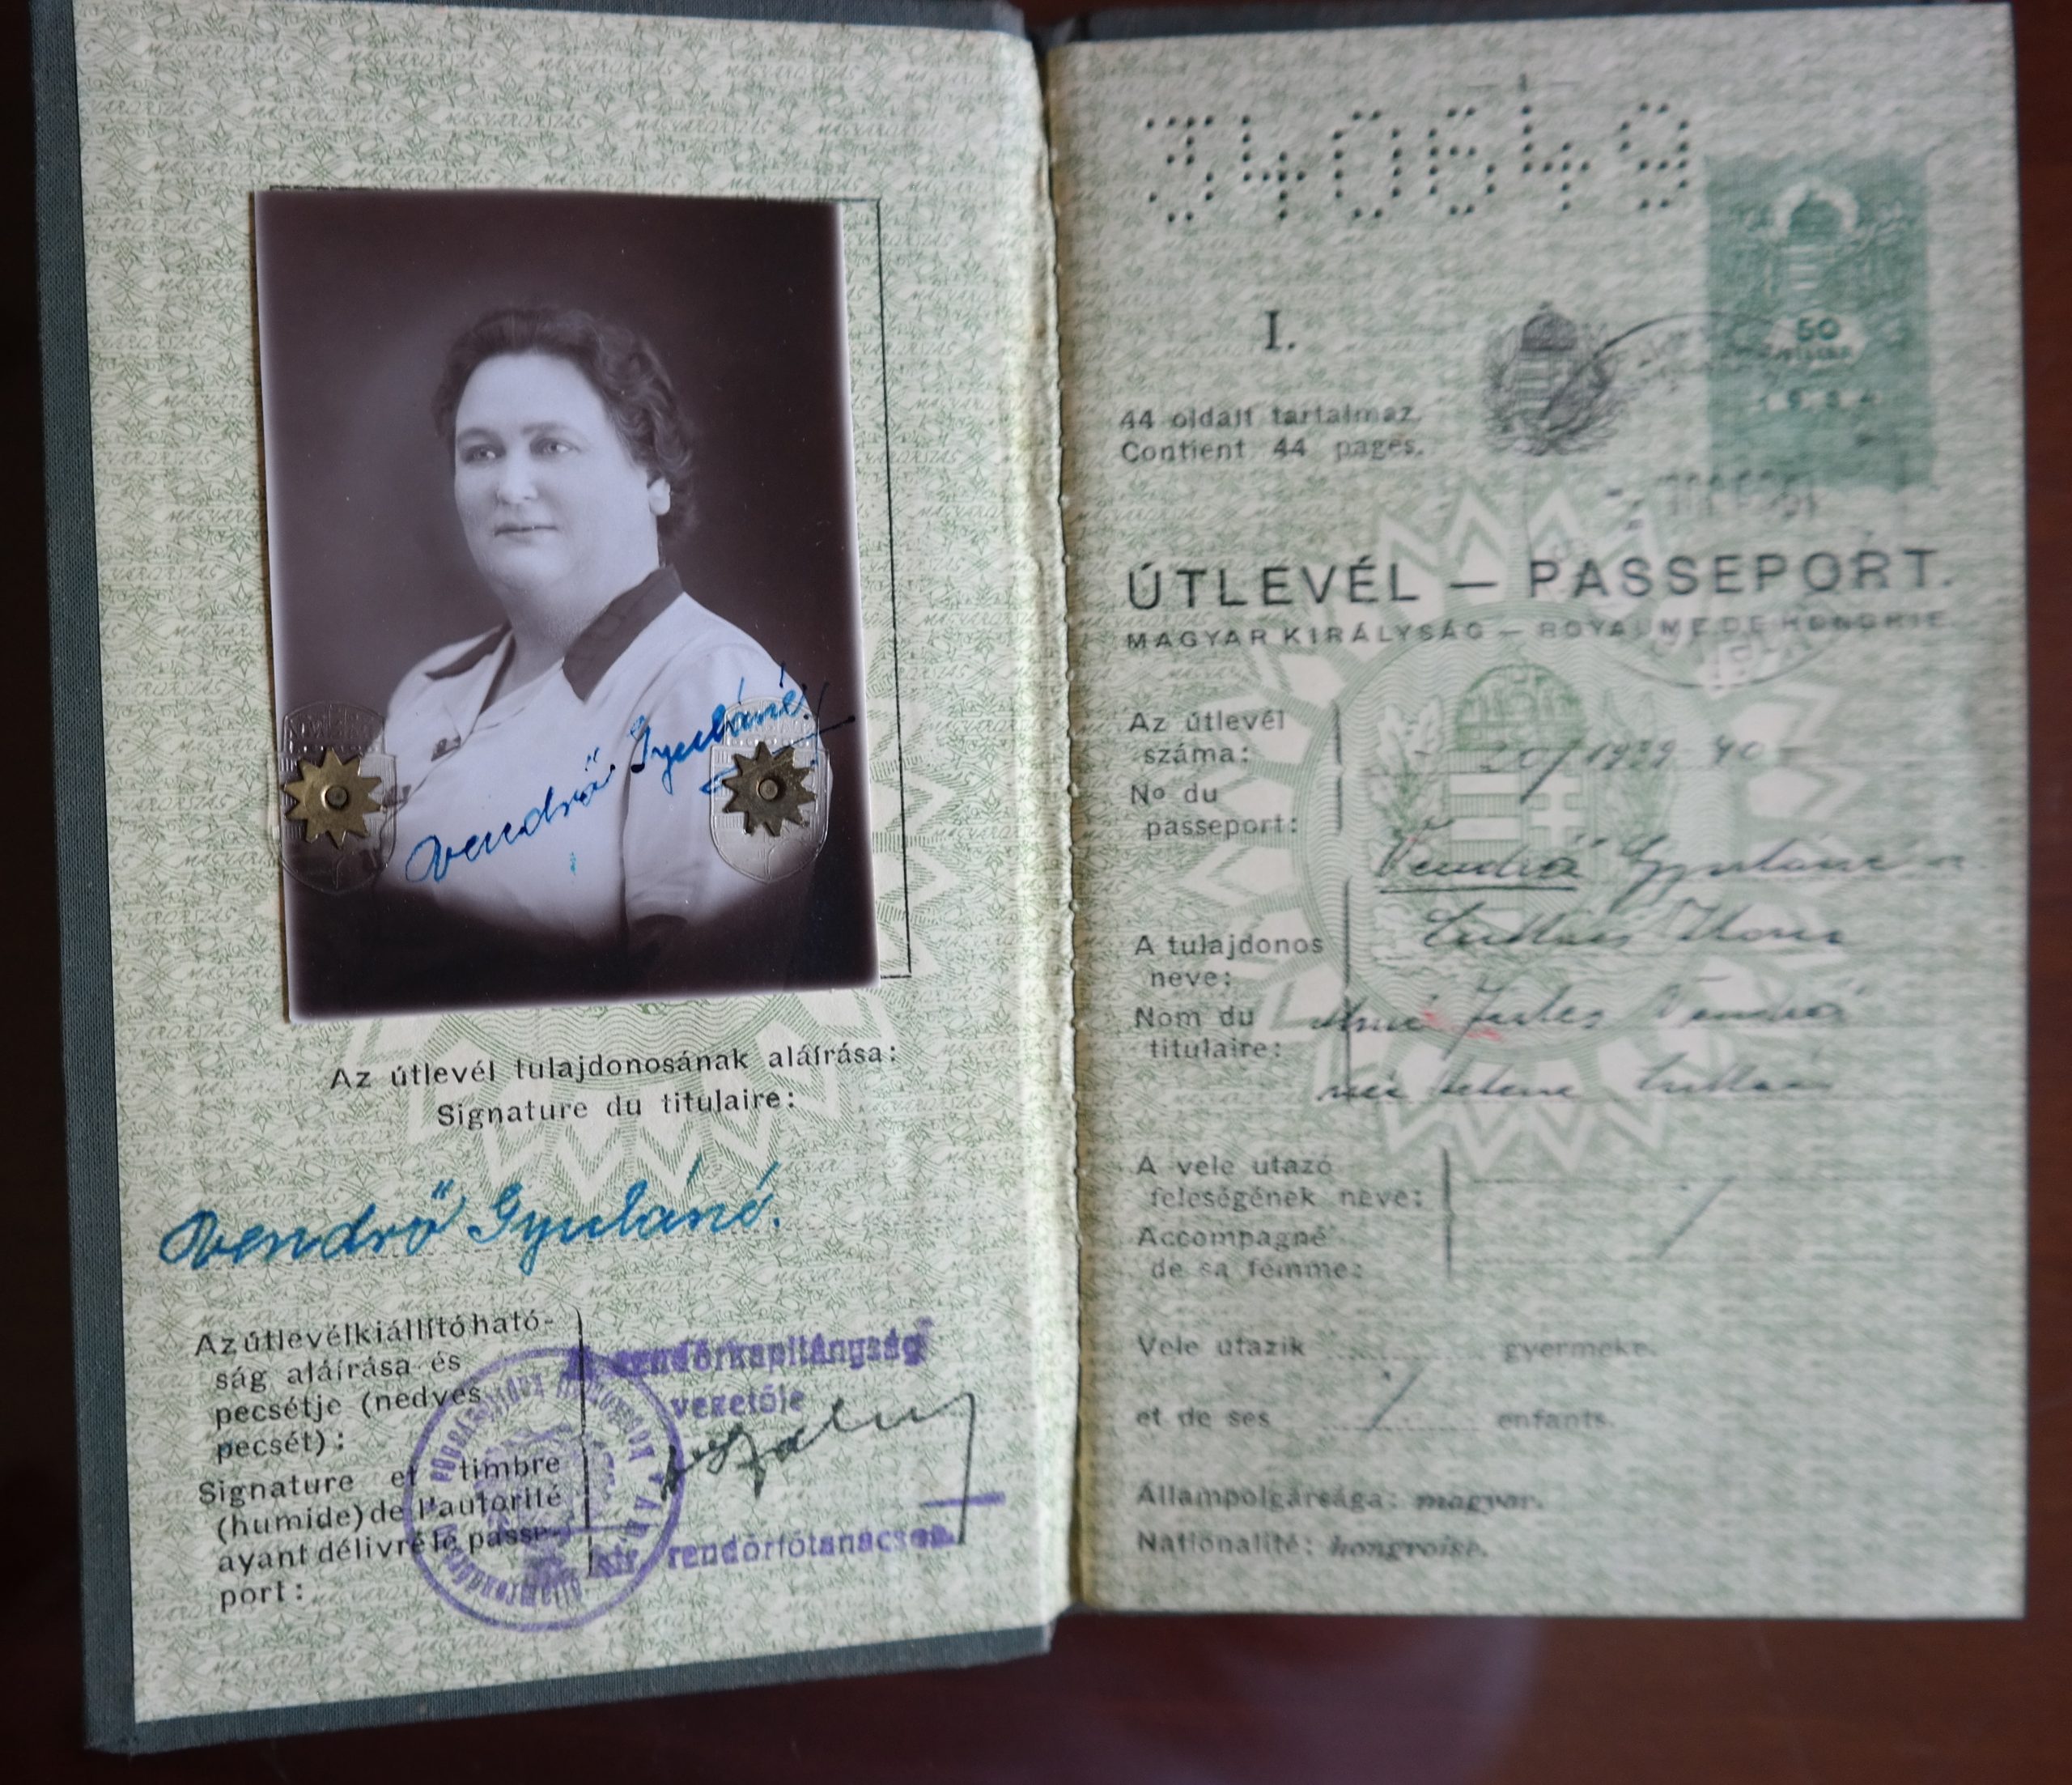 Vendrő Gyuláné
Az útlevél tulajdonosának aláírása:
Signature du titulaire:
Vendrő Gyuláné.
Az útlevél kiállító ható-
ság aláírása és
pecsétje (nedves
pecsét):
Signature et timbre
(humide) de l'autorité
ayant délivré le passe-
port:
A rendőrkapitányság
vezetője
rendőrfőtanácsos
340649
I.
50
1934
44 oldalt tartalmaz.
Contient 44 pages.
ÚTLEVÉL — PASSEPORT.
MAGYAR KIRÁLYSÁG — ROYAUME DE HONGRIE.
Az útlevél
száma:
No du
passeport:
20/1939 40
A tulajdonos
neve:
Nom du
titulaire:
Vendrő Gyuláné
Ilona
Jules Vendrő
A vele utazó
feleségének neve:
Accompagné
de sa femme:
Vele utazik gyermeke.
et de ses enfants.
Állampolgársága: magyar.
Nationalité: hongroise.